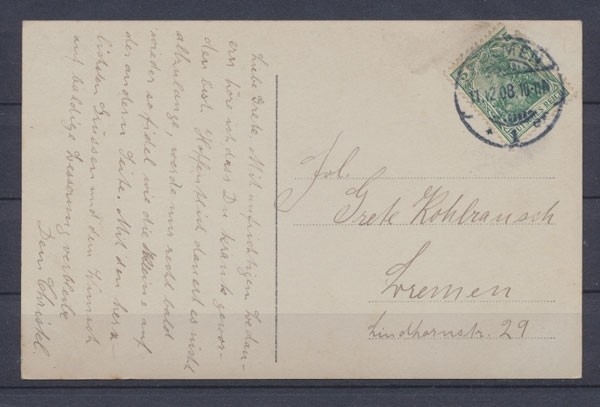 Liebe Grete. Mit aufrichtigen Bedau-
ern höre ich dass Du krank gewor-
den bist. Hoffentlich dauert es nicht
allzulange, werde nur recht bald
wieder so fidel wie die Kleine auf
der andern Seite. Mit den herz-
lichsten Grüssen und dem Wunsch
auf baldige Besserung verbleibe
Dein Christel
BREMEN
11.12.08.10-11N
* 1
Frl.
Grete Kohlrausch
Bremen
Lindhornstr. 29